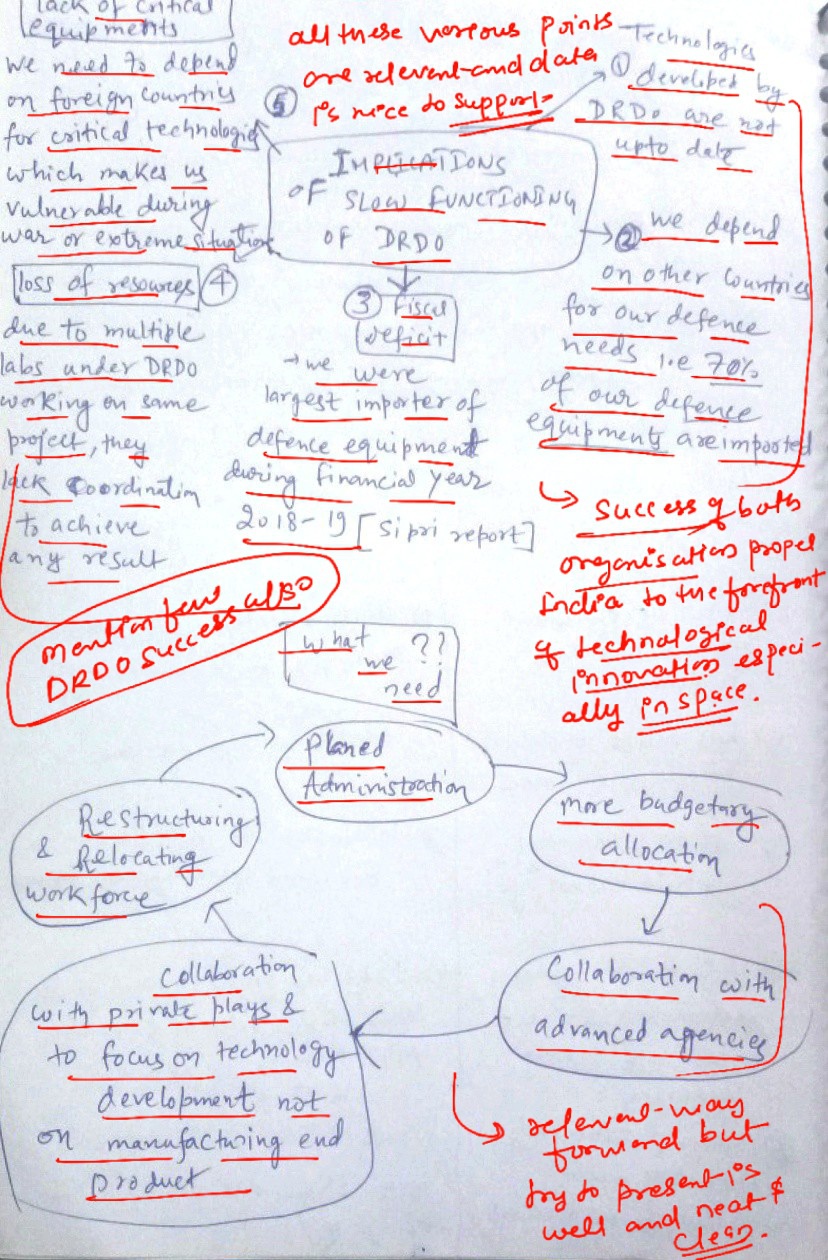 lack of Critical
equipments
We need to depend
on foreign countries
for critical technologies
which makes us
vulnerable during
war or extreme situation
all these various points
are relevent and data
is nice to support
Technologies
① developed by
DRDO are not
upto date
⑤
IMPLICATIONS
OF SLOW FUNCTIONING
OF DRDO
② we depend
on other countries
for our defence
needs i.e 70%
of our defence
equipments are imported
③ Fiscal
deficit
→ we were
largest importer of
defence equipment
during financial year
2018-19 [Sipri report]
loss of resources ④
due to multiple
labs under DRDO
working on same
project, they
lack coordination
to achieve
any result
Success of both
organisation propel
India to the forefront
of technological
innovation especi-
ally in space.
mention few also
DRDO success
What ??
we
need
Planed
Administration
more budgetary
allocation
Collaboration with
advanced agencies
Collaboration
with private plays &
to focus on technology
development not
on manufacturing end
product
Restructuring
& Relocating
workforce
relevent way
forward but
try to present is
well and neat &
clean.